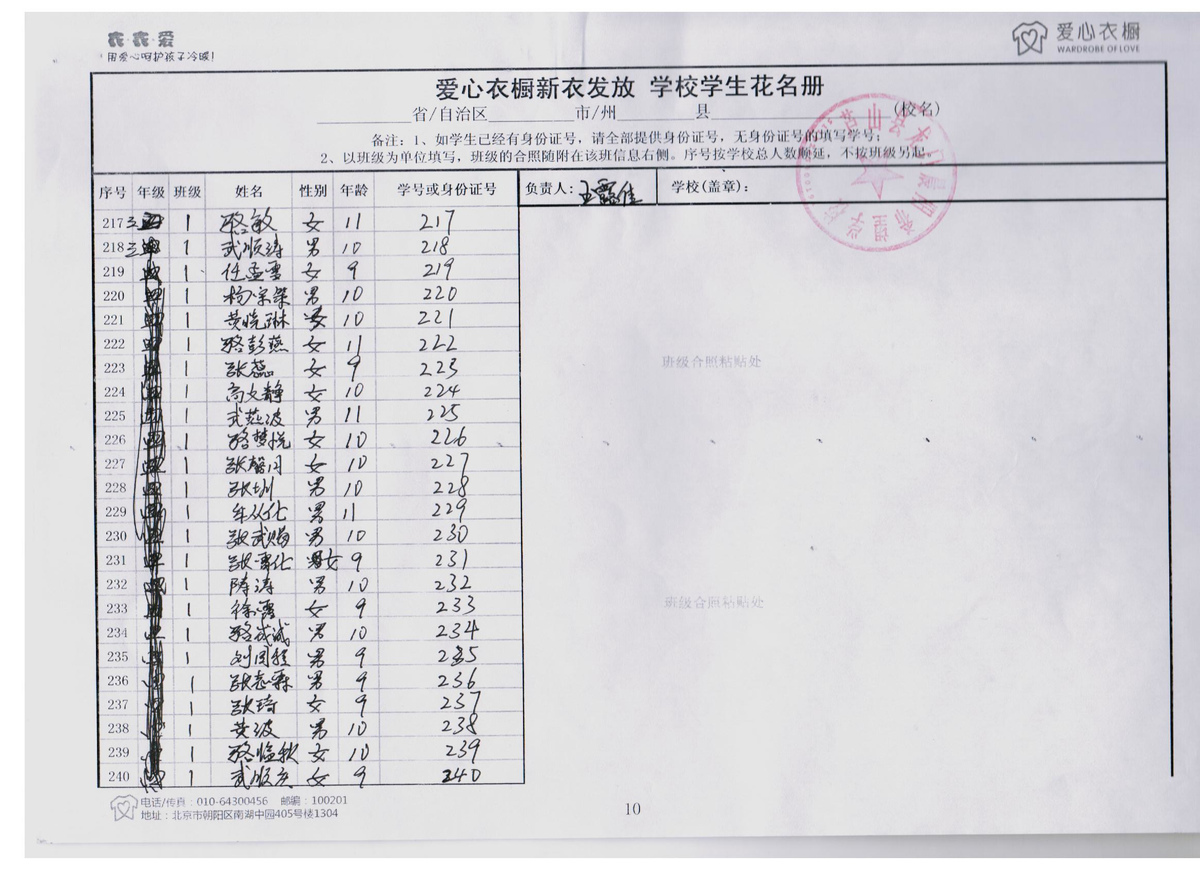 衣·衣·爱
用爱心呵护孩子冷暖!
爱心衣橱
WARDROBE OF LOVE
爱心衣橱新衣发放 学校学生花名册
省/自治区 市/州 县 (校名)
备注：1、如学生已经有身份证号，请全部提供身份证号，无身份证号的填写学号；
2、以班级为单位填写，班级的合照随附在该班信息右侧。序号按学校总人数顺延，不按班级另起。
序号 年级 班级 姓名 性别 年龄 学号或身份证号 负责人: 学校(盖章):
217 三 1 骆敏 女 11 217
218 三 1 武顺涛 男 10 218
219 1 任孟雪 女 9 219
220 1 杨宗 男 10 220
221 1 黄晓琳 女 10 221
222 1 骆彭燕 女 11 222
223 1 张蕊 女 9 223
224 1 高文静 女 10 224
225 1 武燕波 男 11 225
226 1 骆梦悦 女 10 226
227 1 张馨月 女 10 227
228 1 张圳 男 10 228
229 1 牟从化 男 11 229
230 1 张武 男 10 230
231 1 张雪化 女 9 231
232 1 陈涛 男 10 232
233 1 徐霞 女 9 233
234 1 骆成诚 男 10 234
235 1 刘国程 男 9 235
236 1 张志霖 男 9 236
237 1 张琦 女 9 237
238 1 黄波 男 10 238
239 1 骆临秋 女 10 239
240 1 武顺 女 9 240
班级合照粘贴处
班级合照粘贴处
电话/传真：010-64300456 邮编：100201
地址：北京市朝阳区南湖中园405号楼1304
10